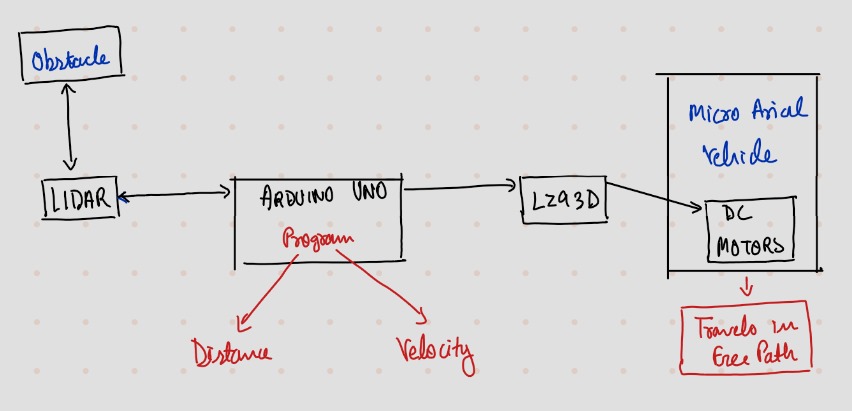 Obstacle
LIDAR
ARDUINO UNO
Program
Distance
Velocity
L293D
Micro Arial
Vehicle
DC
MOTORS
Travels in
Free Path